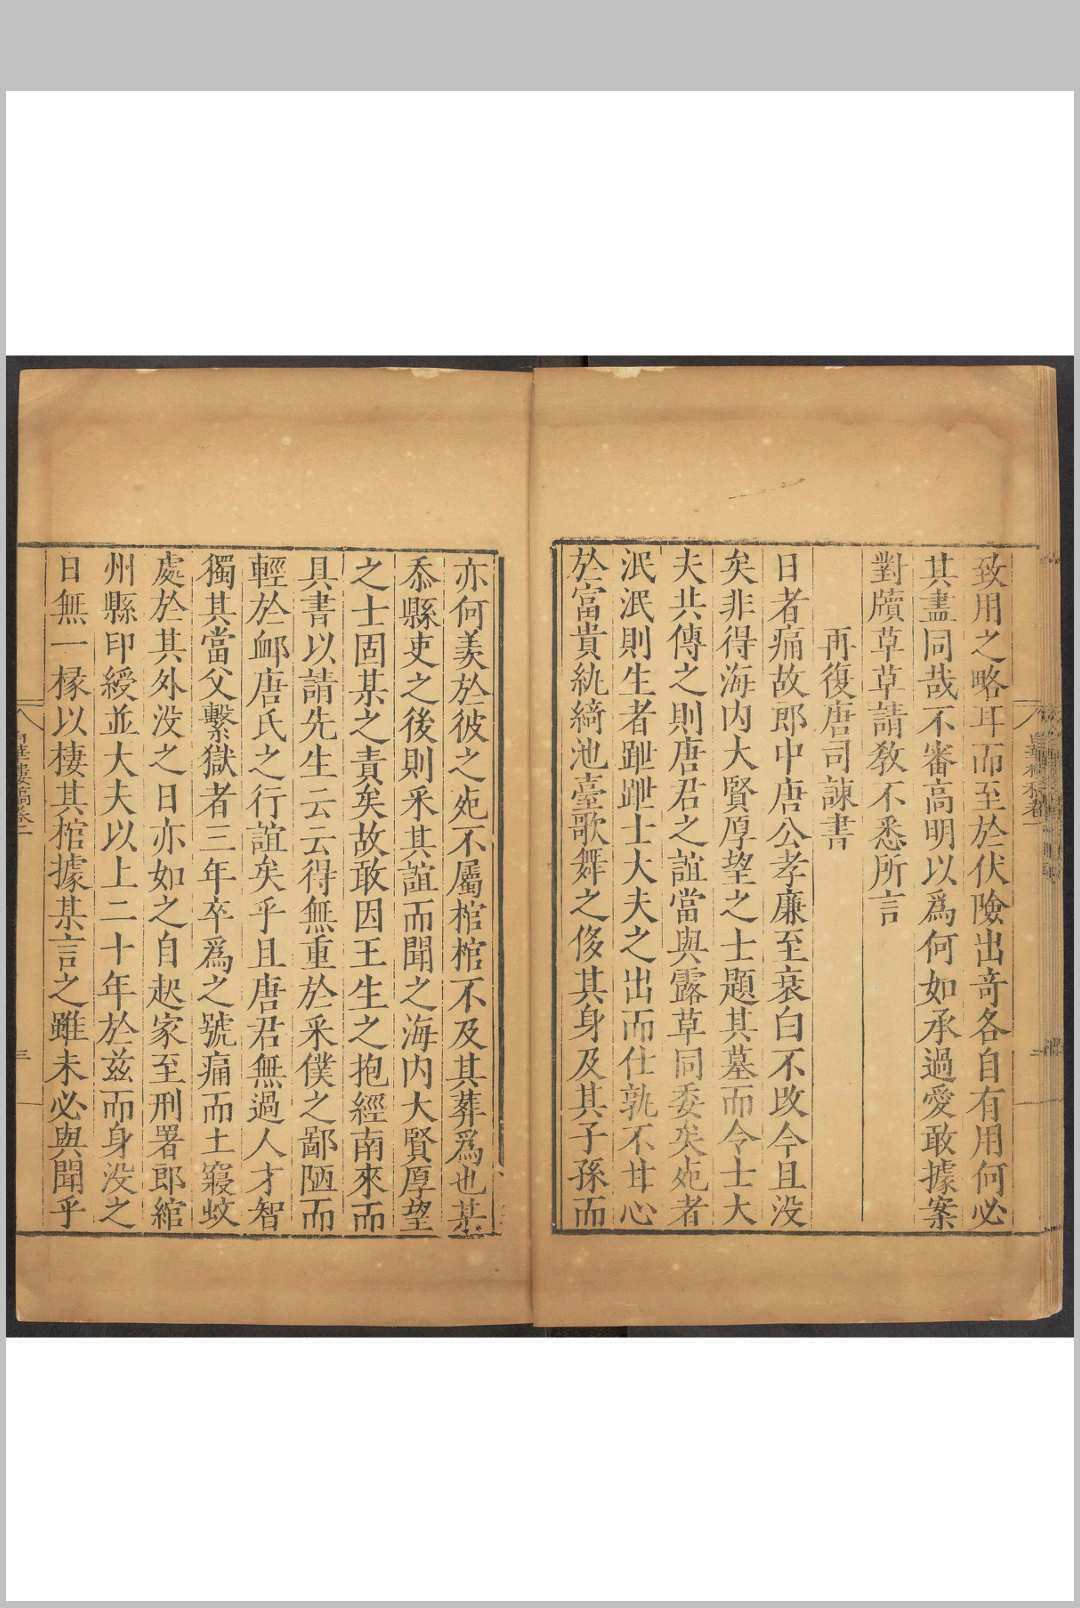 致用之略耳而至於伏險出奇各自有用何必
其盡同哉不審高明以爲何如承過愛敢據案
對牘草草請教不悉所言
再復唐司諫書
日者痛故郎中唐公孝廉至衰白不改今且没
矣非得海内大賢厚望之士題其墓而令士大
夫共傳之則唐君之誼當與露草同委矣死者
泯泯則生者跐跐士大夫之出而仕孰不甘心
於富貴紈綺池臺歌舞之侈其身及其子孫而
亦何羨於彼之死不屬棺棺不及其葬爲也某
忝縣吏之後則釆其誼而聞之海内大賢厚望
之士固某之責矣故敢因王生之抱經南來而
具書以請先生云云得無重於釆僕之鄙陋而
輕於䘏唐氏之行誼矣乎且唐君無過人才智
獨其當父繫獄者三年卒爲之號痛而土寢蚊
處於其外没之日亦如之自起家至刑署郎綰
州縣印綬並大夫以上二十年於兹而身没之
日無一椽以棲其棺據某言之雖未必與聞乎
白華樓稿卷二
三